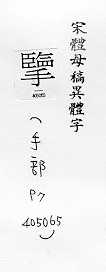 宋體母稿異體字
(手部
P7
405065
)